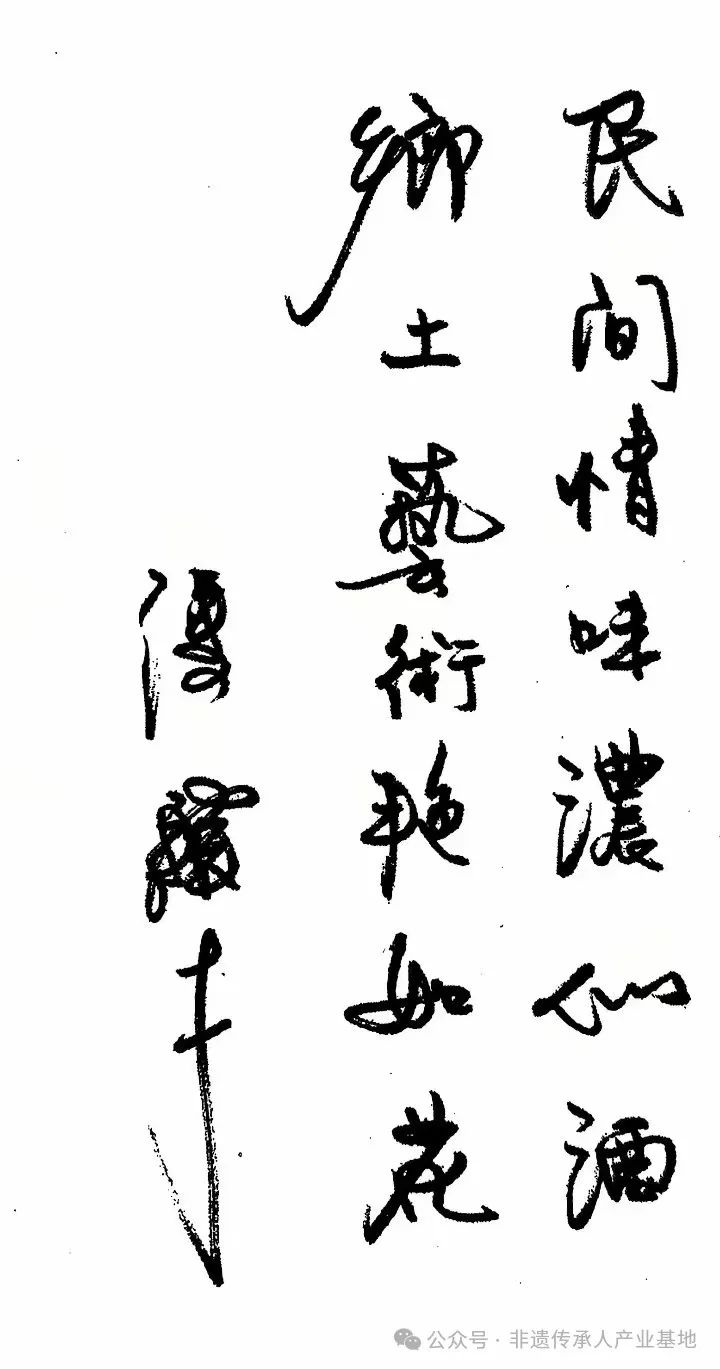 民间情味濃似酒
鄉土藝術艳如花
公众号·非遗传承人产业基地